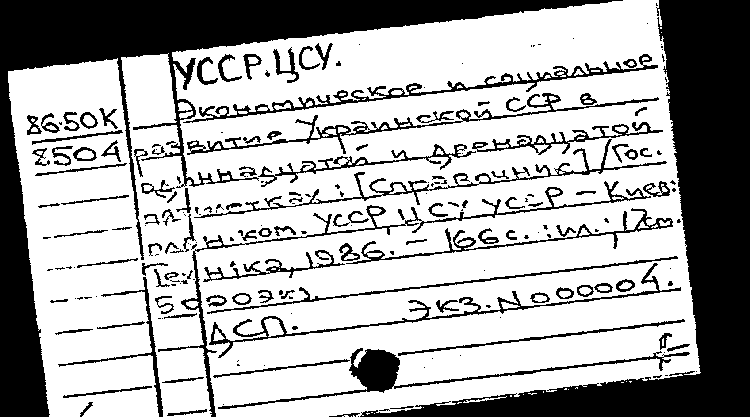 УССР.ЦСУ.
Экономическое и социальное
86-50К
развитие Украинской ССР в
8504
одиннадцатой и двенадцатой
пятилетках : [Справочник] / Гос.
план.ком. УССР, ЦСУ УССР - Киев:
Технiка, 1986. - 166с. : ил. ; 17см.
5020экз.
ДСП. ЭКЗ.N000004.